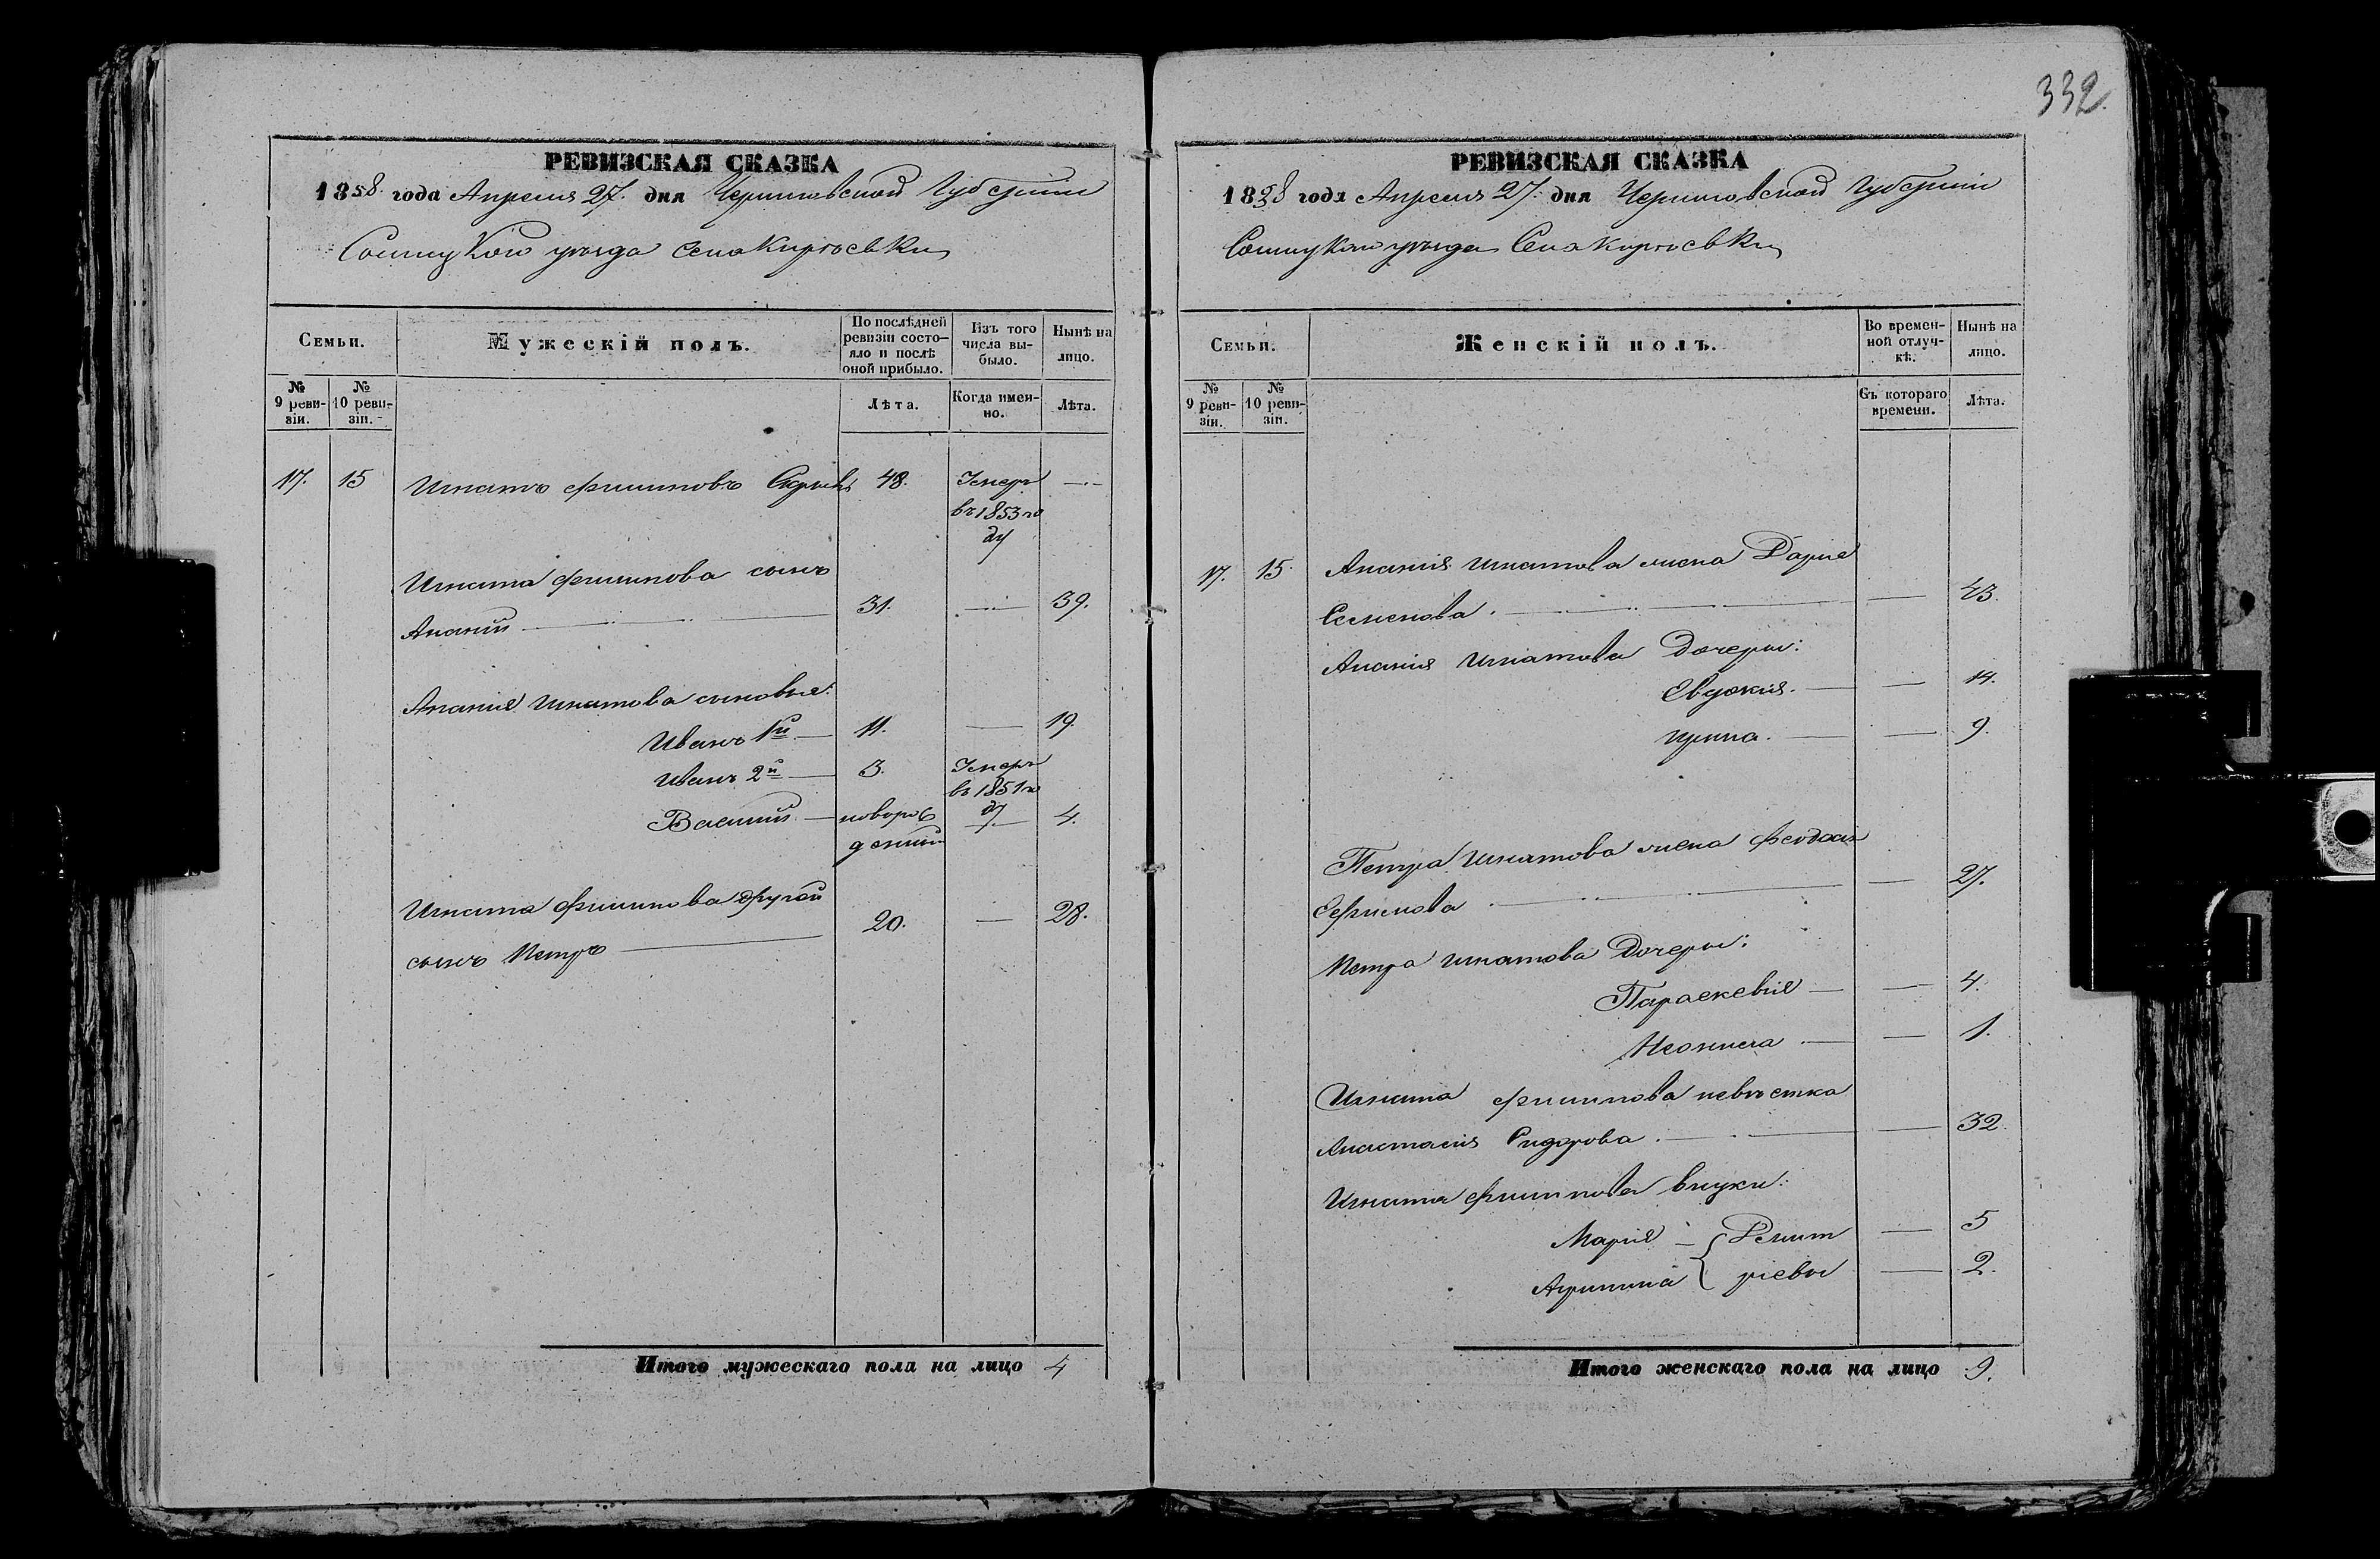 332.
РЕВИЗСКАЯ СКАЗКА
1858. года Апреля 27. дня Черниговской Губерніи
уѣзда села Кирѣевки
Семьи.
Мужескій полъ.
По послѣдней ревизіи состояло и послѣ оной прибыло.
Изъ того числа выбыло.
Нынѣ на лицо.
№ 9 ревизіи.
№ 10 ревизіи.
Лѣта.
Когда именно.
Лѣта.
17. 15 Игнатъ Филиповъ 48. Умеръ —
въ 1853 го
ду
Игната Филипова сынъ
Ананій — 31. — 39.
Ананія Игнатова сыновья:
Иванъ 1й — 11. — 19.
Иванъ 2й — 3. Умеръ
въ 1851 го
ду
Василій — новорож — 4.
денный
Игната Филипова другой
сынъ Петръ — 20. — 28.
Итого мужескаго пола на лицо 4
РЕВИЗСКАЯ СКАЗКА
1858 года Апреля 27. дня Черниговской Губерніи
уѣзда Села Кирѣевки
Семьи.
Женскій полъ.
Во временной отлучкѣ.
Нынѣ на лицо.
№ 9 ревизіи.
№ 10 ревизіи.
Съ котораго времени.
Лѣта.
17. 15. Ананія Игнатова жена Дарья
Семенова. — — 43.
Ананія Игнатова Дочери:
Евдокія. — — 14.
Ирина. — — 9.
Петра Игнатова жена Феодосія
Ефимова — — 27.
Петра Игнатова Дочери:
Параскевія — — 4.
— — 1.
Игната Филипова невѣстка
Анастасія Сидорова. — — 32.
Игната Филипова внуки:
Марія — { Демит — 5
Агрипина { ріевы — 2.
Итого женскаго пола на лицо 9.